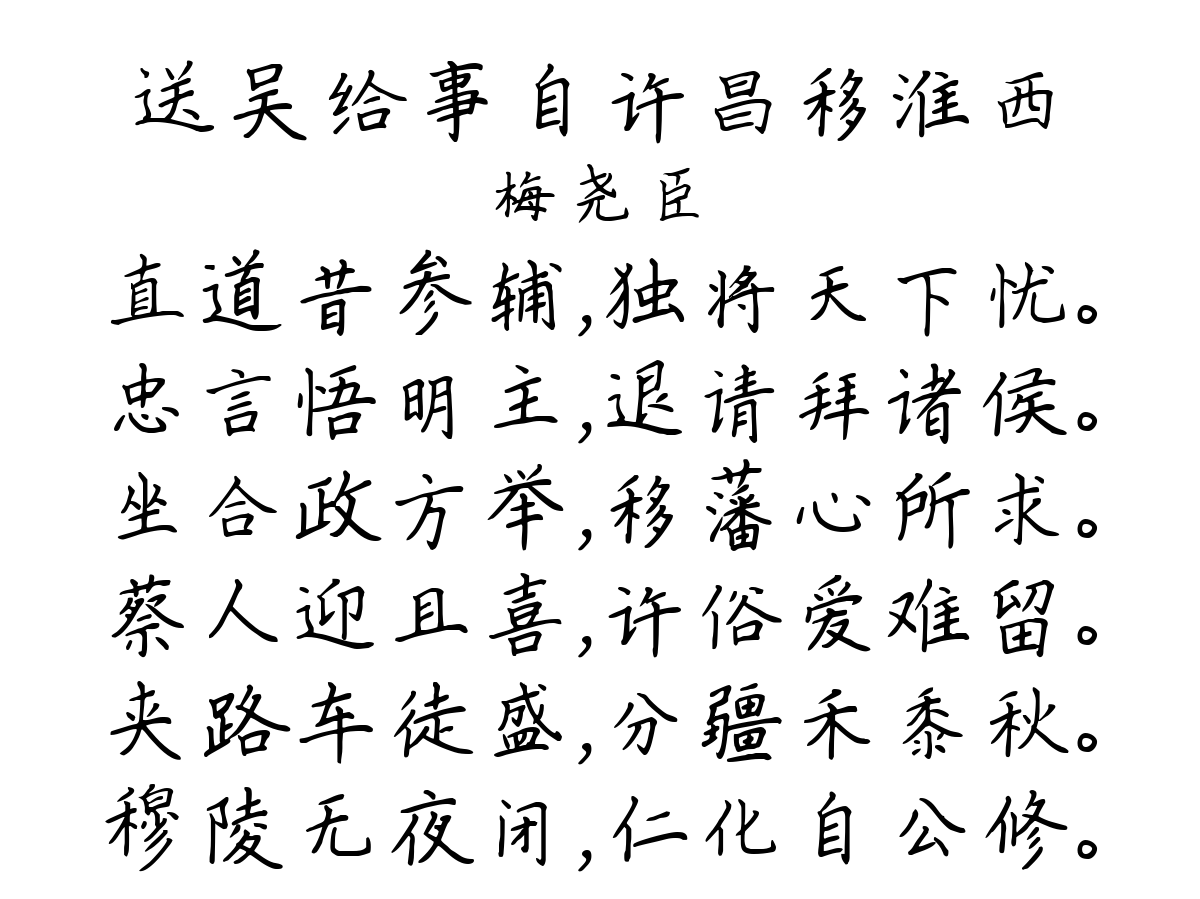 送吴给事自许昌移淮西
梅尧臣
直道昔参辅,独将天下忧。
忠言悟明主,退请拜诸侯。
坐合政方举,移藩心所求。
蔡人迎且喜,许俗爱难留。
夹路车徒盛,分疆禾黍秋。
穆陵无夜闭,仁化自公修。